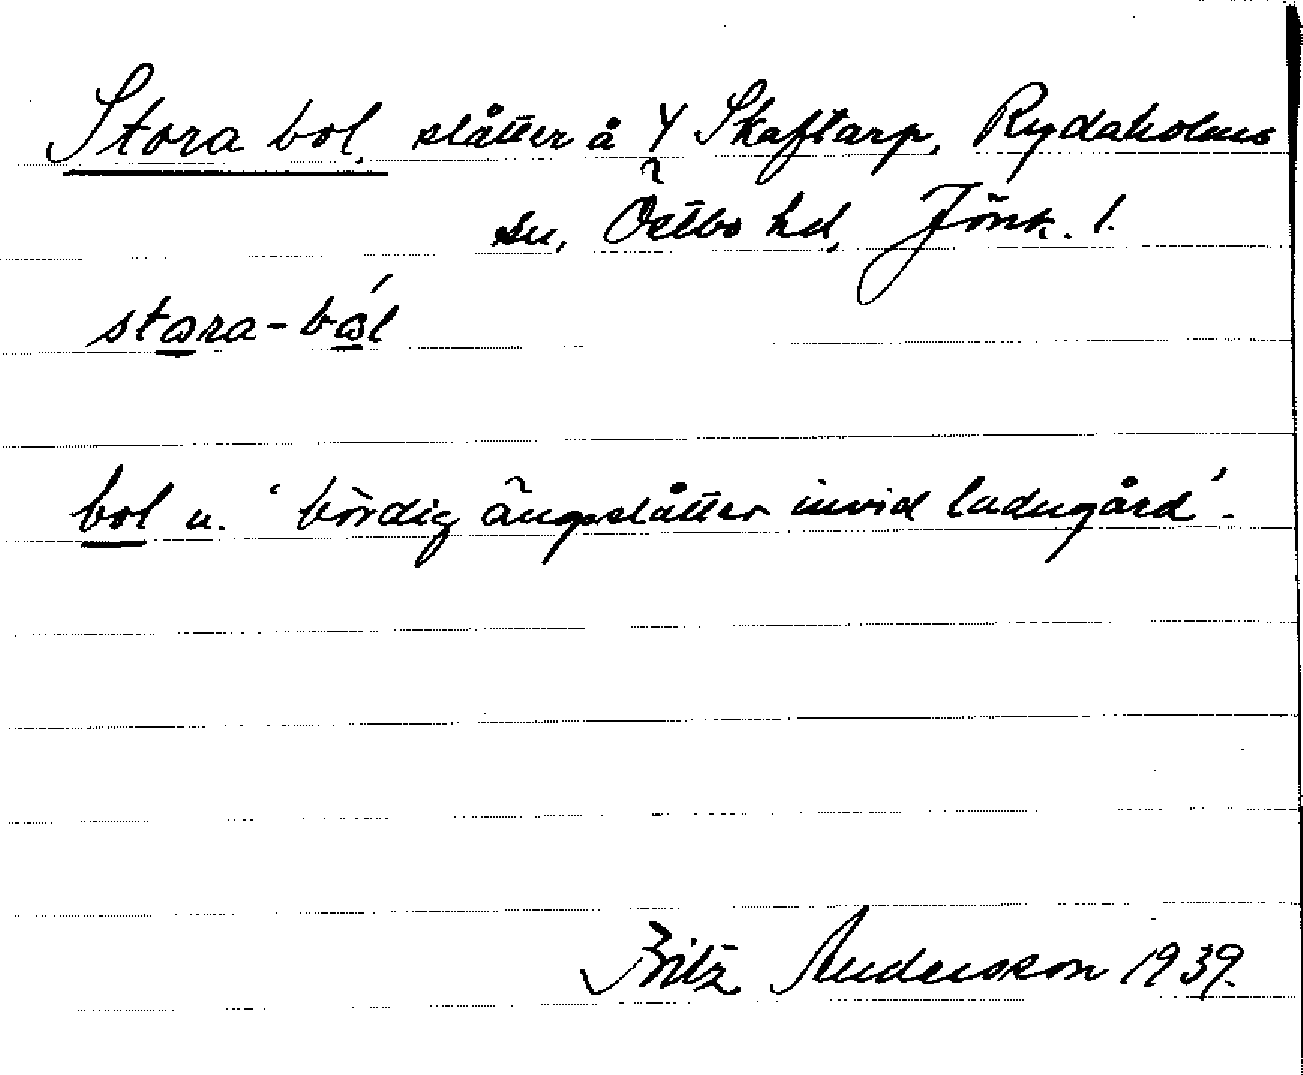 Stora bol, slåtter å Y Skaftarp, Rydaholms
sn, Östbo hd, Jönk. l.
stora-ból
bol n. 'bördig ängsslåtter invid ladugård'.
Fritz Andersson 1939.